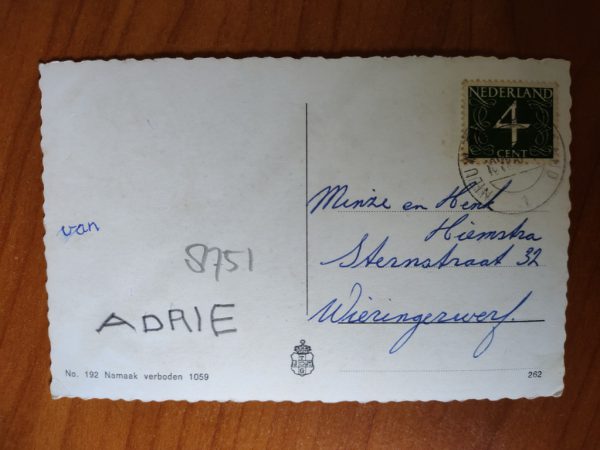 NEDERLAND
4
CENT
Minze en Henk
Hiemstra
Sternstraat 32
Wieringerwerf.
van
8751
ADRIE
No. 192 Namaak verboden 1059
262